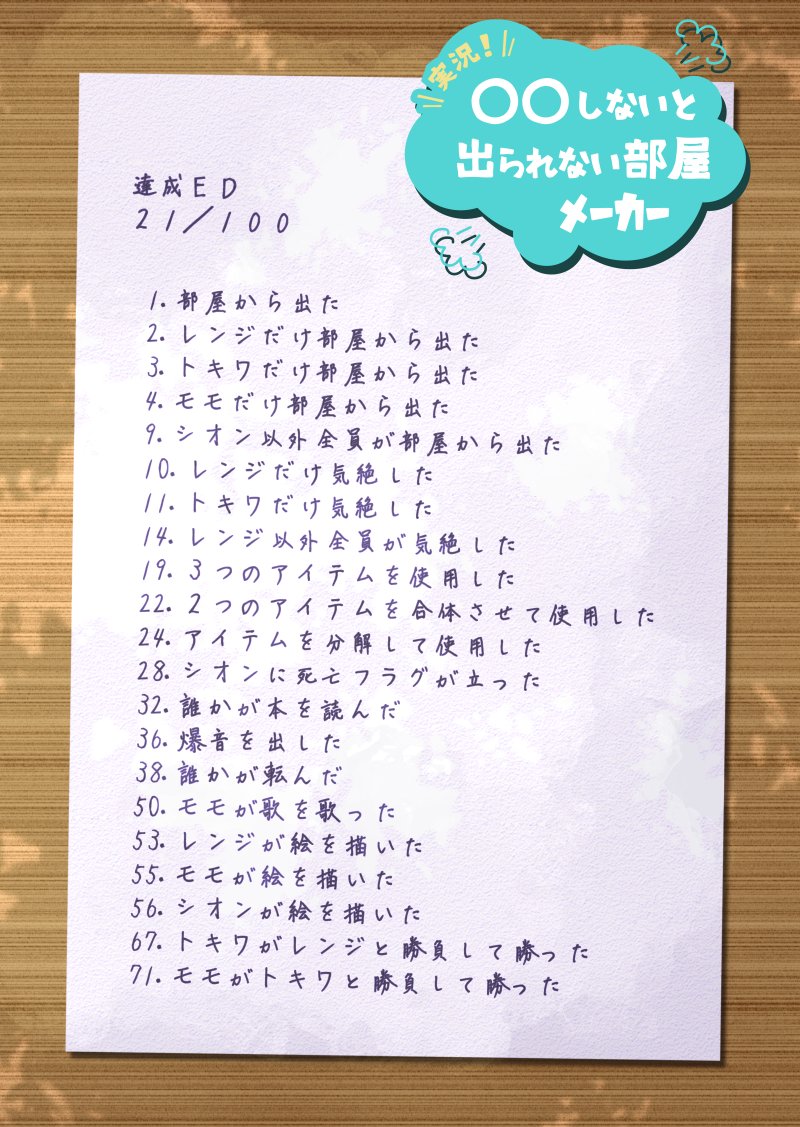 実況!
〇〇しないと
出られない部屋
メーカー
達成ED
21/100
1. 部屋から出た
2. レンジだけ部屋から出た
3. トキワだけ部屋から出た
4. モモだけ部屋から出た
9. シオン以外全員が部屋から出た
10. レンジだけ気絶した
11. トキワだけ気絶した
14. レンジ以外全員が気絶した
19. 3つのアイテムを使用した
22. 2つのアイテムを合体させて使用した
24. アイテムを分解して使用した
28. シオンに死亡フラグが立った
32. 誰かが本を読んだ
36. 爆音を出した
38. 誰かが転んだ
50. モモが歌を歌った
53. レンジが絵を描いた
55. モモが絵を描いた
56. シオンが絵を描いた
67. トキワがレンジと勝負して勝った
71. モモがトキワと勝負して勝った